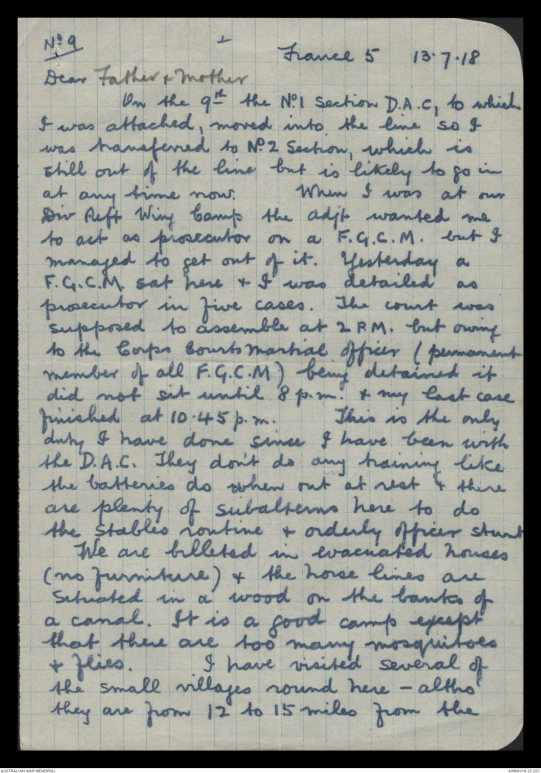 No 9
1
France 5 13.7.18
Dear Father & Mother
On the 9th the No 1 Section D.A.C, to which
I was attached, moved into the line so I
was transferred to No 2 Section, which is
still out of the line but is likely to go in
at any time now. When I was at our
Div Reft Wing Camp the adjt wanted me
to act as prosecutor on a F.G.C.M. but I
managed to get out of it. Yesterday a
F.G.C.M. sat here & I was detailed as
prosecutor in five cases. The court was
supposed to assemble at 2 P.M. but owing
to the Corps Courts Martial officer (permanent
member of all F.G.C.M) being detained it
did not sit until 8 p.m. & my last case
finished at 10.45 p.m. This is the only
duty I have done since I have been with
the D.A.C. They don't do any training like
the batteries do when out at rest & there
are plenty of subalterns here to do
the stables routine & orderly officer stunt
We are billeted in evacuated houses
(no furniture) & the horse lines are
situated in a wood on the banks of
a canal. It is a good camp except
that there are too many mosquitoes
& flies. I have visited several of
the small villages round here – altho
they are from 12 to 15 miles from the
AUSTRALIAN WAR MEMORIAL